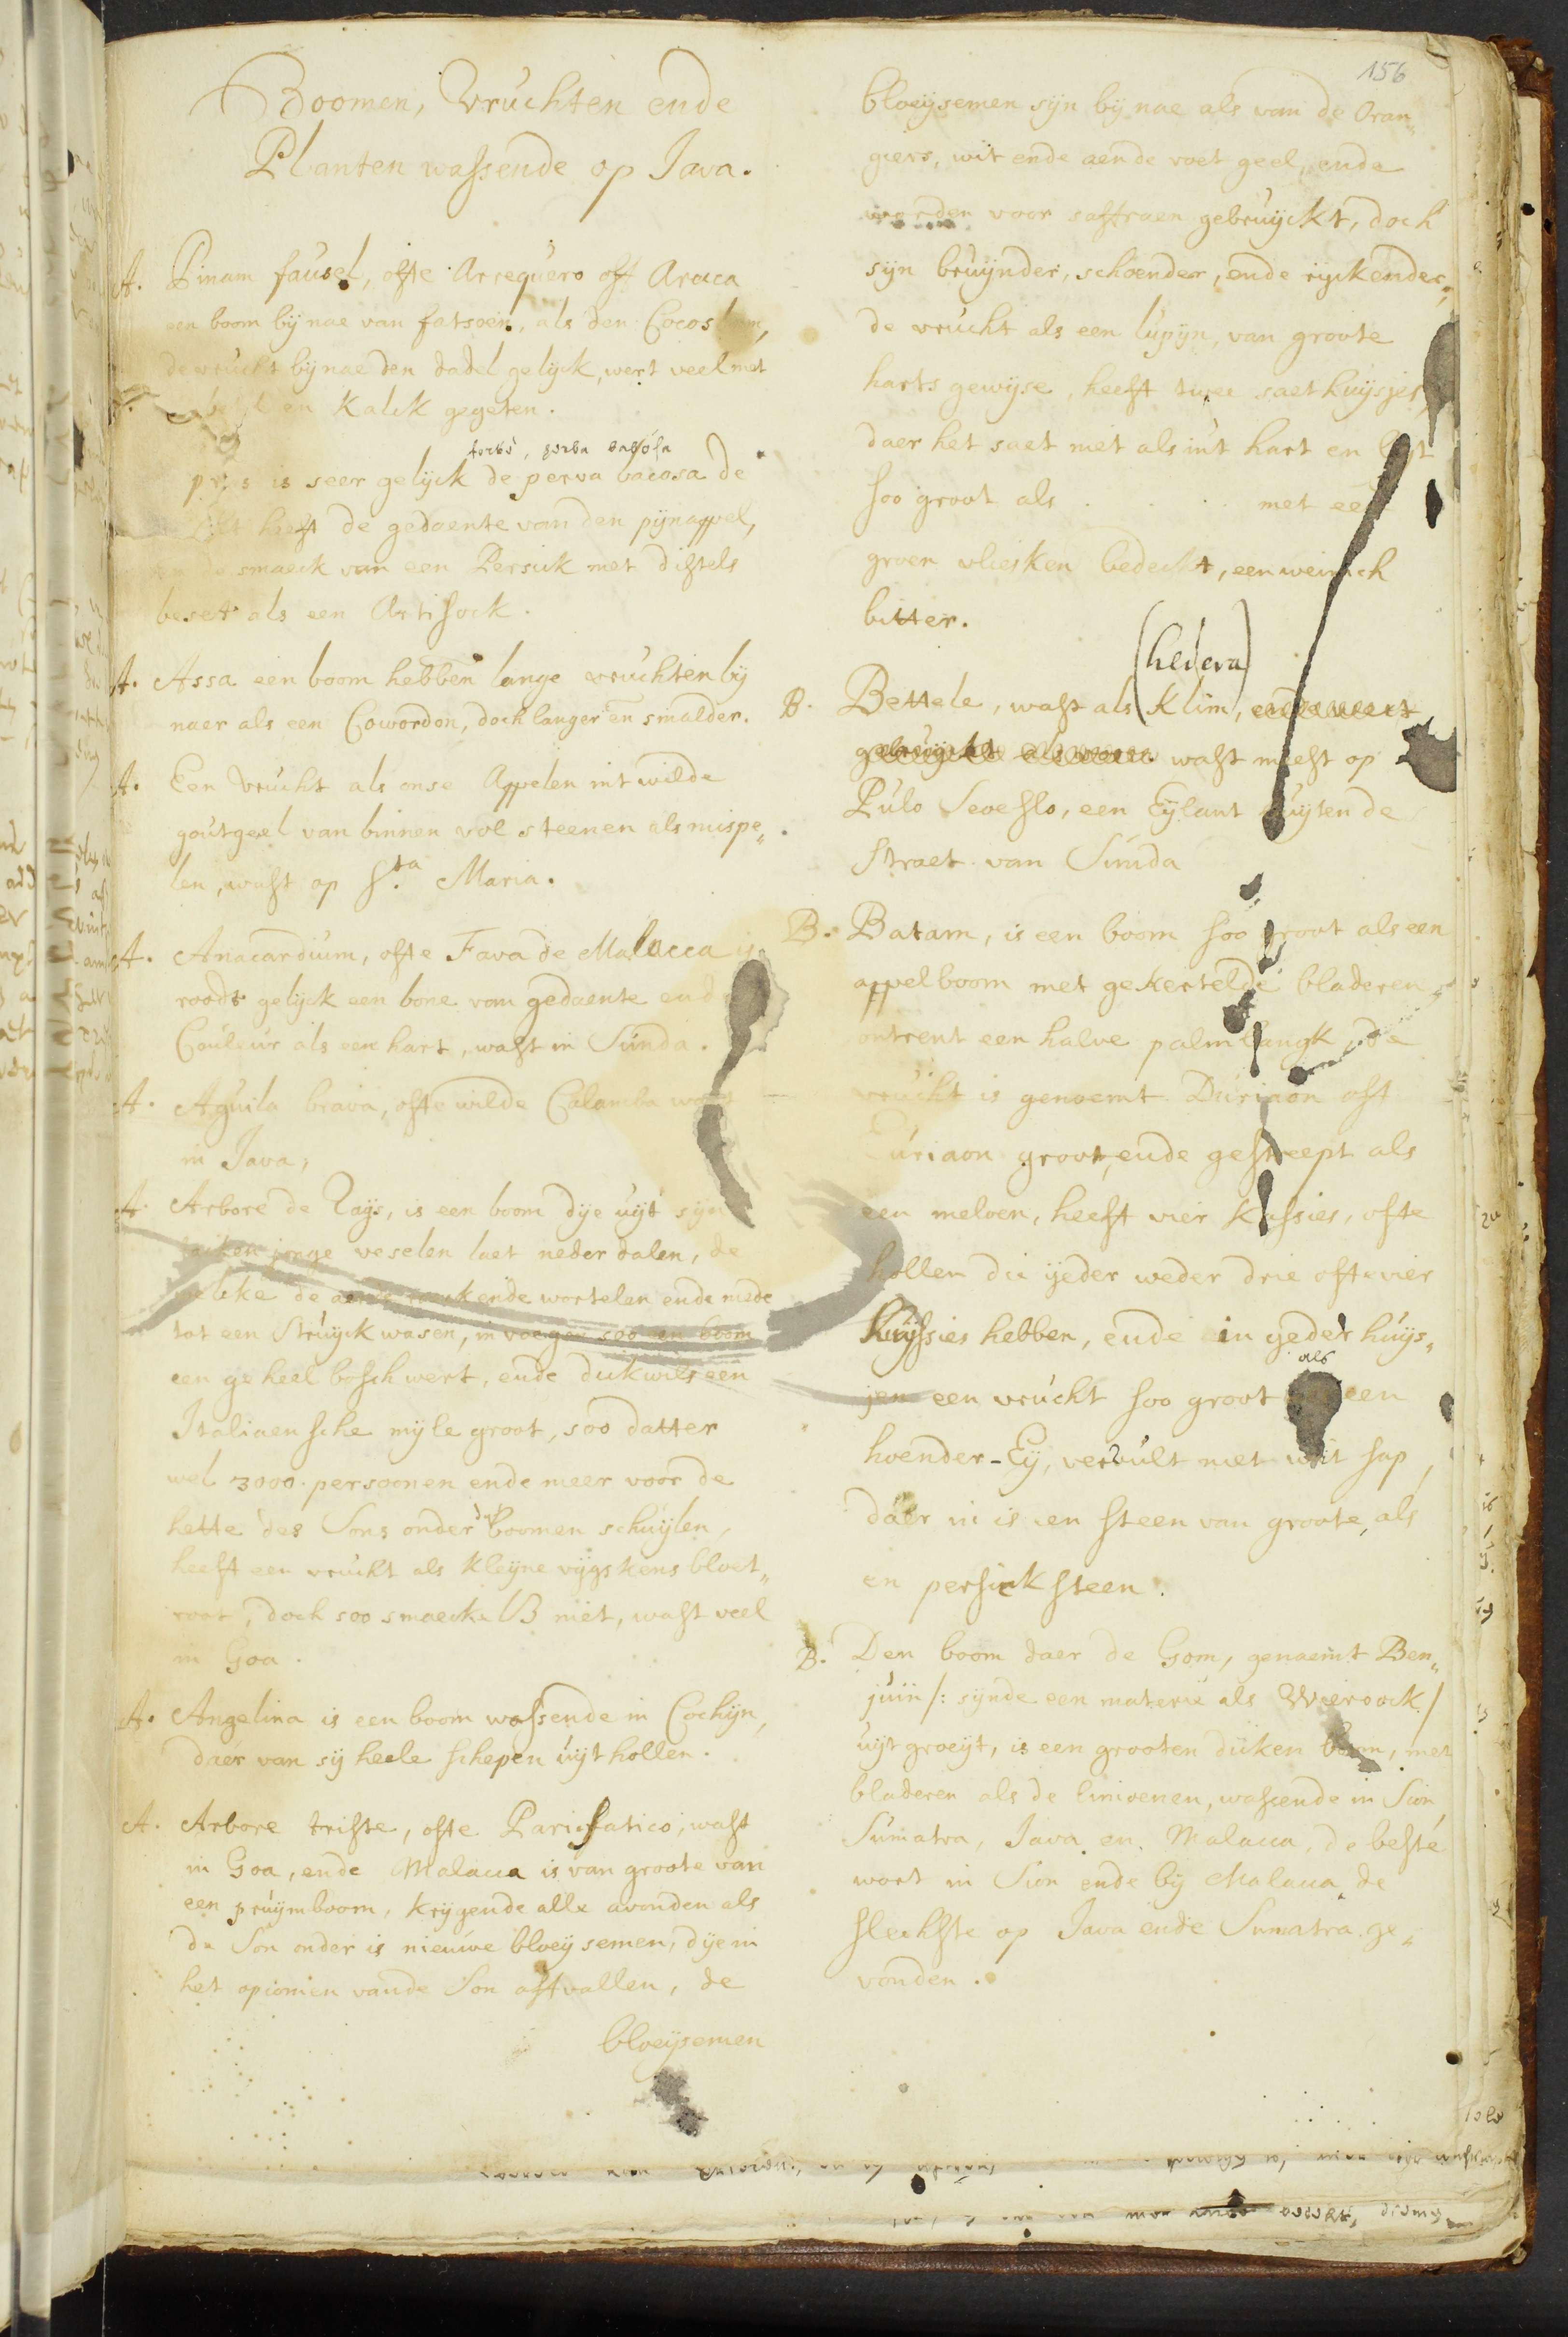 156
Boomen, Vruchten ende
Planten wassende op Java.
A. Pinam fausel, ofte Arrequero off Araca
een boom bij nae van fatsoen, als den Cocosboom,
de vrucht bij nae den dadel gelijck, wert veel met
en Kalck gegeten.
is seer gelijck de perva bacosa de
heeft de gedaente van den pijnappel,
de smaeck van een Persick met distels
beset als een Artisock.
A. Assa een boom hebben lange vruchten bij
naer als een Cowordon, doch langer en smalder.
A. Een Vrucht als onse Appelen int wilde
goutgeel van binnen vol steenen als mispe„
len, wast op S.ta Maria.
A. Anacardium, ofte Fava de Malacca is
roodt gelijck een bone van gedaente end
Couleur als een hart, wast in Sunda.
A. Aguila brava, ofte wilde Calamba wast
in Java,
A. Arbore de Rays, is een boom dije uijt sijn
jonge veselen laet neder dalen, de
welcke de aerde raeckende wortelen ende mede
tot een Struijck wasen, in voegen soo een boom
een geheel bosch wert, ende dickwils een
Italiaensche mijle groot, soo datter
wel 3000. persoonen ende meer voor de
hette des Sons onder d' boomen schuijlen,
heeft een vrucht als kleijne vijgskens bloet„
root, doch soo smaecke niet, wast veel
in Goa.
A. Angelina is een boom wassende in Cochijn,
daer van sij heele schepen uijt hollen.
A. Arbore triste, ofte Parisatico, wast
in Goa, ende Malacca is van groote van
een pruijmboom, krijgende alle avonden als
de Son onder is nieuwe bloeijsemen, dije in
het opcomen vande Son affvallen, de
bloeijsemen
bloeijsemen sijn bij nae als van de Oran„
giers, wit ende aende voet geel, ende
worden voor saffraen gebruijckt, doch
sijn bruijnder, schoender, ende rijckender,
de vrucht als een lupijn, van groote
harts gewijse, heeft twee saethuijsjes,
daer het saet niet als int hart en
soo groot als . . . met een
groen vliesken bedeckt, een weinich
bitter.
(hedera)
B. Bettele, wast als Klim, ende wert
gebruijckt als voor. wast meest op
Pulo Sevesso, een Eijlant buijten de
Straet van Sunda
B. Batam, is een boom soo groot als een
appelboom met gekertelde bladeren
ontrent een halve palm langk, de
vrucht is genoemt Duriaon oft
Euriaon groot, ende gestreept als
een meloen, heeft vier kassies, ofte
hollen die ijeder weder drie ofte vier
huijssies hebben, ende in yeder huijs„
jen een vrucht soo groot als een
hoender-Eij, vervult met wit sap,
daer in is een steen van groote, als
en persicksteen.
B. Den boom daer de Gom, genaemt Ben„
juin /: sijnde een materie als Wieroock /
uijt groeijt, is een grooten dicken boom, met
bladeren als de limoenen, wassende in Sion
Sumatra, Java en Malacca, de beste
wort in Sion ende bij Malacca de
slechste op Java ende Sumatra ge„
vonden.